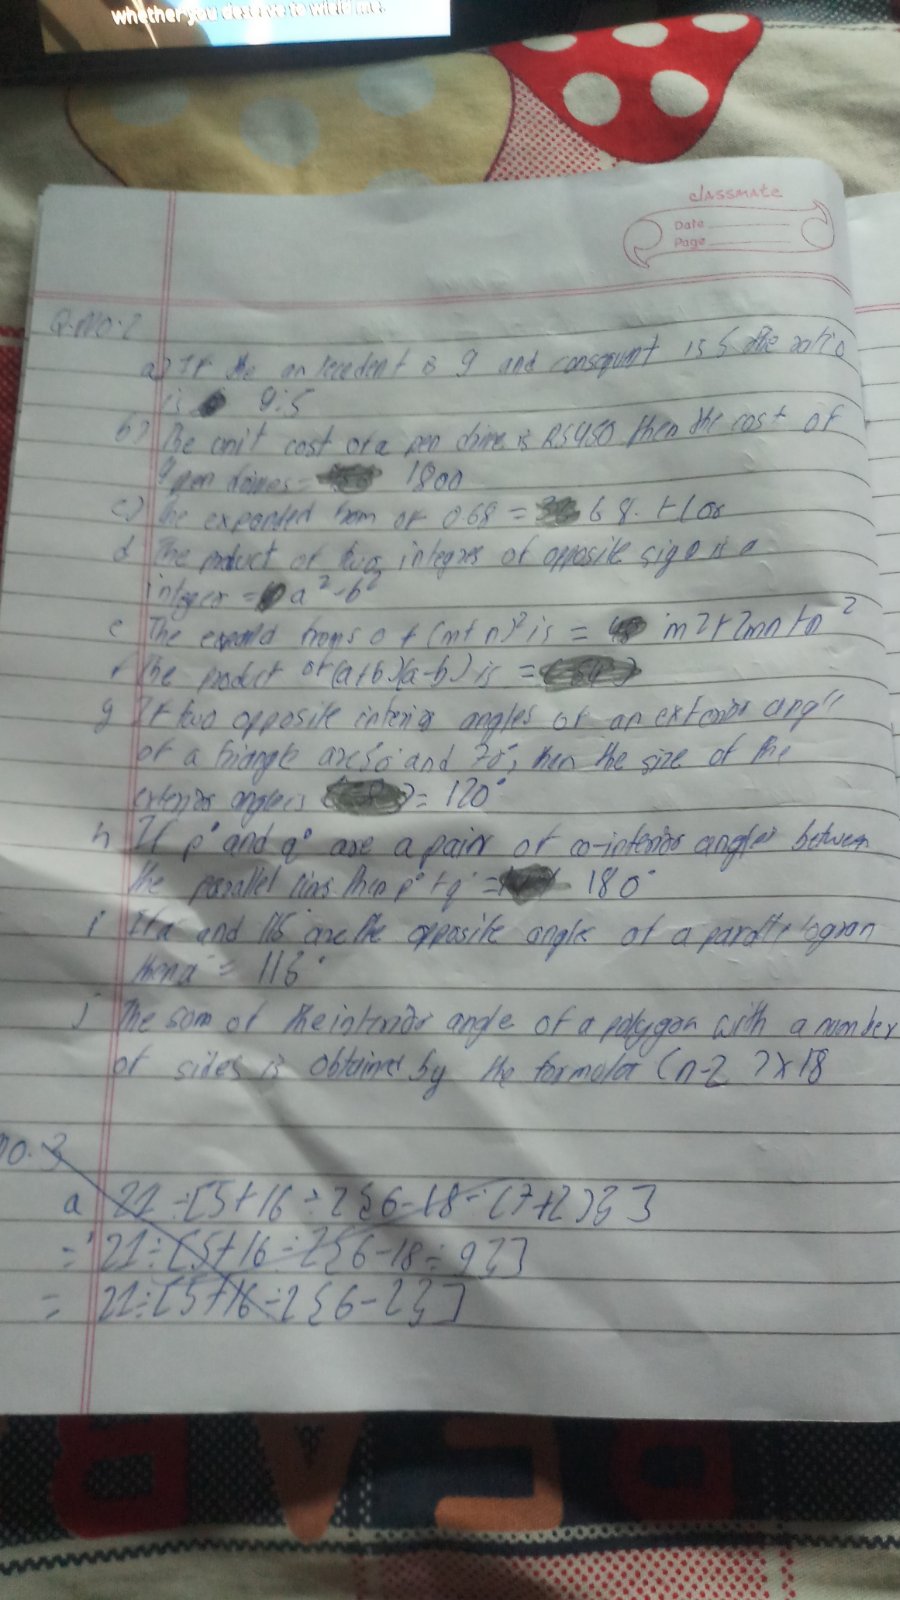 whether you deserve to wield me.
classmate
Date
Page
Q.No.2
a) If the antecedent is 9 and consequnt is 5 the ratio
is 9:5
b) The unit cost of a pen drive is RS450 then the cost of
pen drives = 1800
c) The expanted from of 068 =
d The product of two integres of opposite sign is a
integer = a²-b²
e The expand froms of (m+n)² is = m2+2mn+n²
f The product of (a+b)(a-b) is =
g If two opposite interior angles of an exterior angle
of a triangle are 50° and 70°, then the size of the
exterior angle is = 120°
h If p° and q° are a pair of co-interior angles between
the parallel lins then p°+q° = 180°
i If a and 116° are the opposite angle of a parallelogram
then a = 116°
j The som of the interior angle of a polygon with a number
of sides is obtained by the formolar (n-2)×18
No. 3
a 21÷[5+16÷2{6-18÷(7+2)}]
= 21÷[5+16÷2{6-18÷9}]
= 21÷[5+16÷2{6-2}]